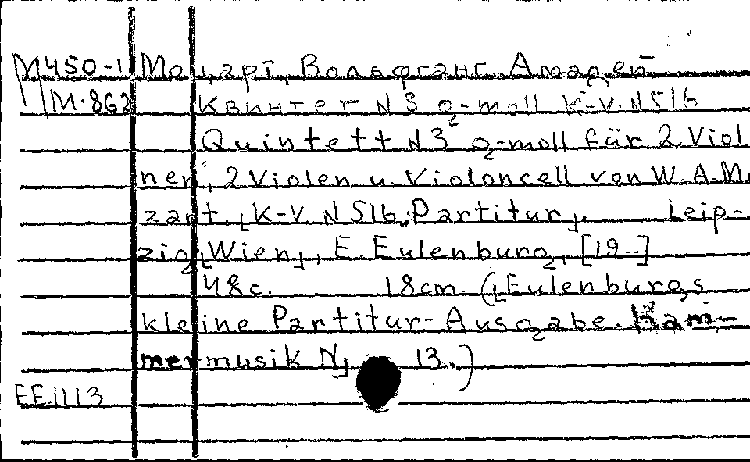 М450-1 Моцарт, Вольфганг Амадей
М.862 Квинтет N3 g-moll K-V.N516
Quintett N3 g-moll für 2 Violi
nen, 2 Violen u. Violoncell von W.A.M.
zart. K-V. N516. Partitur. Leip-
zig, Wien, E. Eulenburg, [19 ]
48 с. 18cm. (Eulenburgs
kleine Partitur-Ausgabe. Kam-
mermusik N 13.)
EE.1113